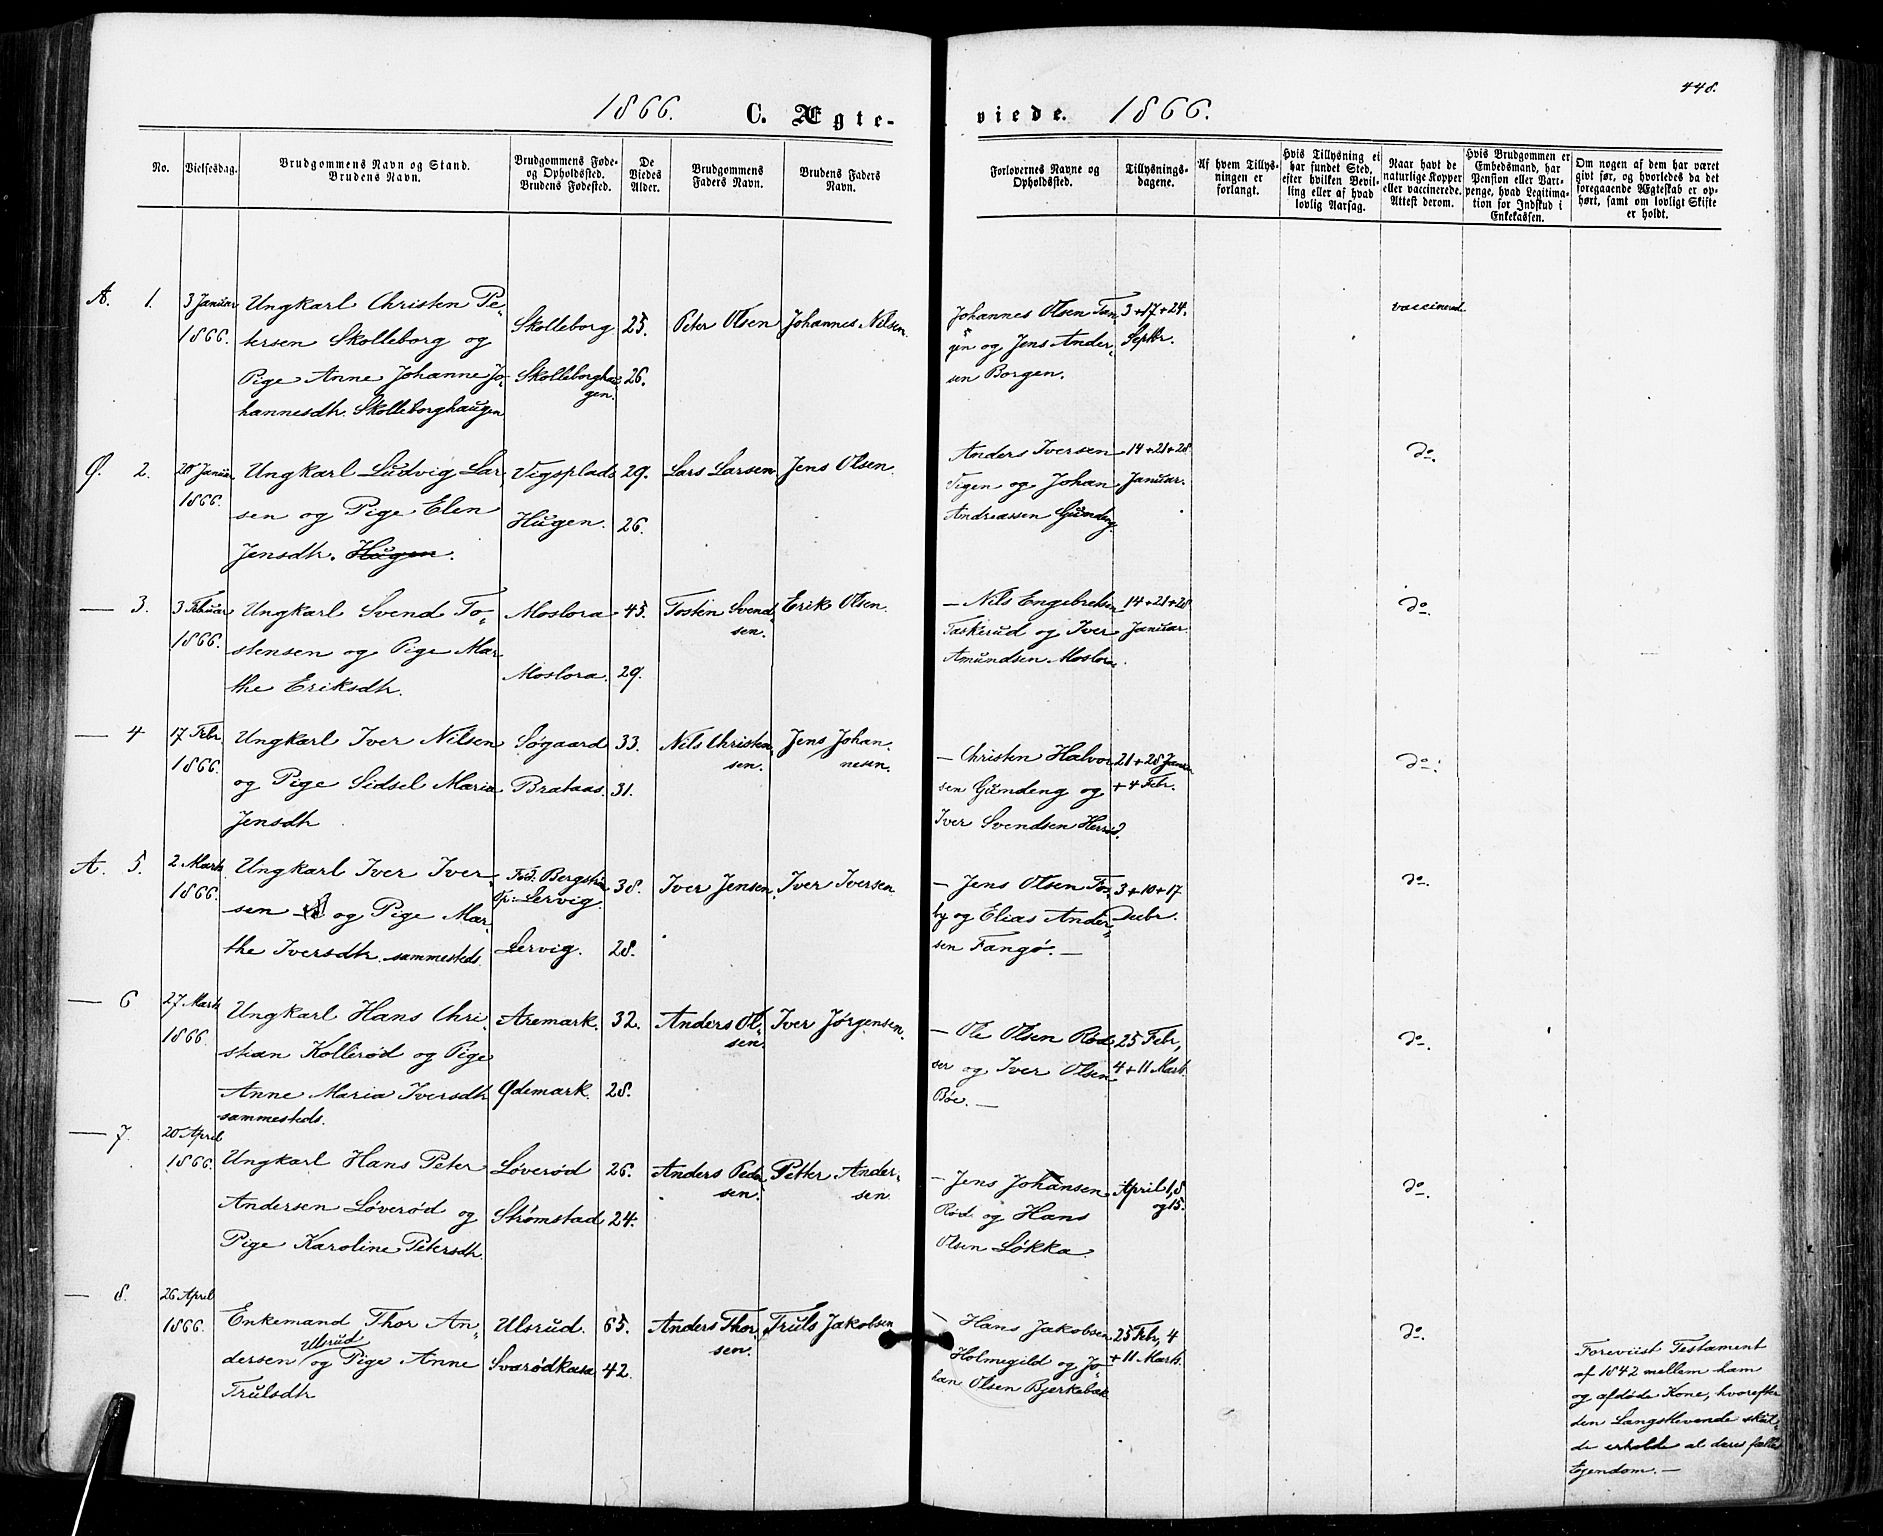 448.
1866. C. Ægte-
viede. 1866.
No.
Vielsesdag.
Brudgommens Navn og Stand.
Brudens Navn.
Brudgommens Føde-
og Opholdssted.
Brudens Fødested.
De
Viedes
Alder.
Brudgommens
Faders Navn.
Brudens Faders
Navn.
Forlovernes Navne og
Opholdssted.
Tillysnings-
dagene.
Af hvem Tillys-
ningen er
forlangt.
Hvis Tillysning ei
har fundet Sted,
efter hvilken Bevil-
ling eller af hvad
lovlig Aarsag.
Naar havt de
naturlige Kopper
eller vaccinerede.
Attest derom.
Hvis Brudgommen er
Embedsmand, har
Pension eller Vart-
penge, hvad Legitima-
tion for Indskud i
Enkekassen.
Om nogen af dem har været
givt før, og hvorledes da det
foregaaende Ægteskab er op-
hørt, samt om lovligt Skifte
er holdt.
A. 1.
3 Januar
1866.
Ungkarl Christen Pe-
tersen Skolleborg og
Pige Anne Johanne Jo-
hannesdtr. Skolleborghaugen
Skolleborg
Skolleborghau-
gen.
25.
26.
Peter Olsen
Johannes Nilsen.
Johannes Olsen Tan-
gen og Jens Ander-
sen Borgen.
3+17+24.
Septbr.
vaccinered
Ø. 2.
28 Januar
1866.
Ungkarl Ludvig Lar-
sen og Pige Elen
Jensdtr. Hugen.
Vigsplads
Hugen.
29.
26.
Lars Larsen
Jens Olsen.
Anders Iversen
Vigen og Johan
Andreassen Gundeng.
14+21+28
Januar.
do.
— 3.
3 Februar
1866.
Ungkarl Svend To-
stensen og Pige Mar-
the Eriksdtr.
Moslora
Moslora.
45.
29.
Tosten Svend-
sen.
Erik Olsen.
— Nils Engebretsen
Taskerud og Iver
Amundsen Moslora.
14+21+28
Januar
do.
— 4
17 Febr.
1866.
Ungkarl Iver Nilsen
og Pige Sidsel Maria
Jensdtr
Søgaard
Brataas.
33.
31.
Nils Christen-
sen.
Jens Johan-
nesen.
— Christen Halvor-
sen Gundeng og
Iver Svendsen Herrød.
21+28 Januar
+4 Febr.
do.
A. 5.
2 Marts
1866.
Ungkarl Iver Iver-
sen og Pige Mar-
the Iversdtr. sammesteds.
Op: Lervig.
Lervig.
38.
28.
Iver Jensen.
Iver Iversen
— Jens Olsen Tos-
by og Elias Ander-
sen Tangø. —
3+10+17
Decbr.
do.
— 6
27 Marts
1866.
Ungkarl Hans Chri-
stian Kollerød og Pige
Anne Maria Iversdtr
sammesteds.
Aremark.
Ødemark.
32.
28.
Anders Ol-
sen.
Iver Jørgensen.
— Ole Olsen Rød-
ser og Iver Olsen
Bøe. —
25 Febr,
4+11 Mart.
do.
— 7.
20 April
1866.
Ungkarl Hans Peter
Andersen Løverød og
Pige Karoline Petersdtr.
Løverød
Strømstad
26.
24.
Anders Peder-
sen.
Petter Ander-
sen.
— Jens Johansen
Rød og Hans
Olsen Løkka.
April 1, 8
og 15.
do.
— 8.
26 April
1866.
Enkemand Thor An-
Ulsrud
dersen og Pige Anne
Trulsdtr
Ulsrud.
Svarødkasa
65.
42.
Anders Thor-
sen.
Truls Jakobsen
— Hans Jakobsen
Holmegild og Jo-
han Olsen Bjerkebæk
25 Febr, 4
+11 Marts.
do.
Foreviist Testament
af 1842 mellem ham
og afdøde Kone, hvorefter
den Længstlevende skul-
de erholde al deres fælles
Ejendom. —